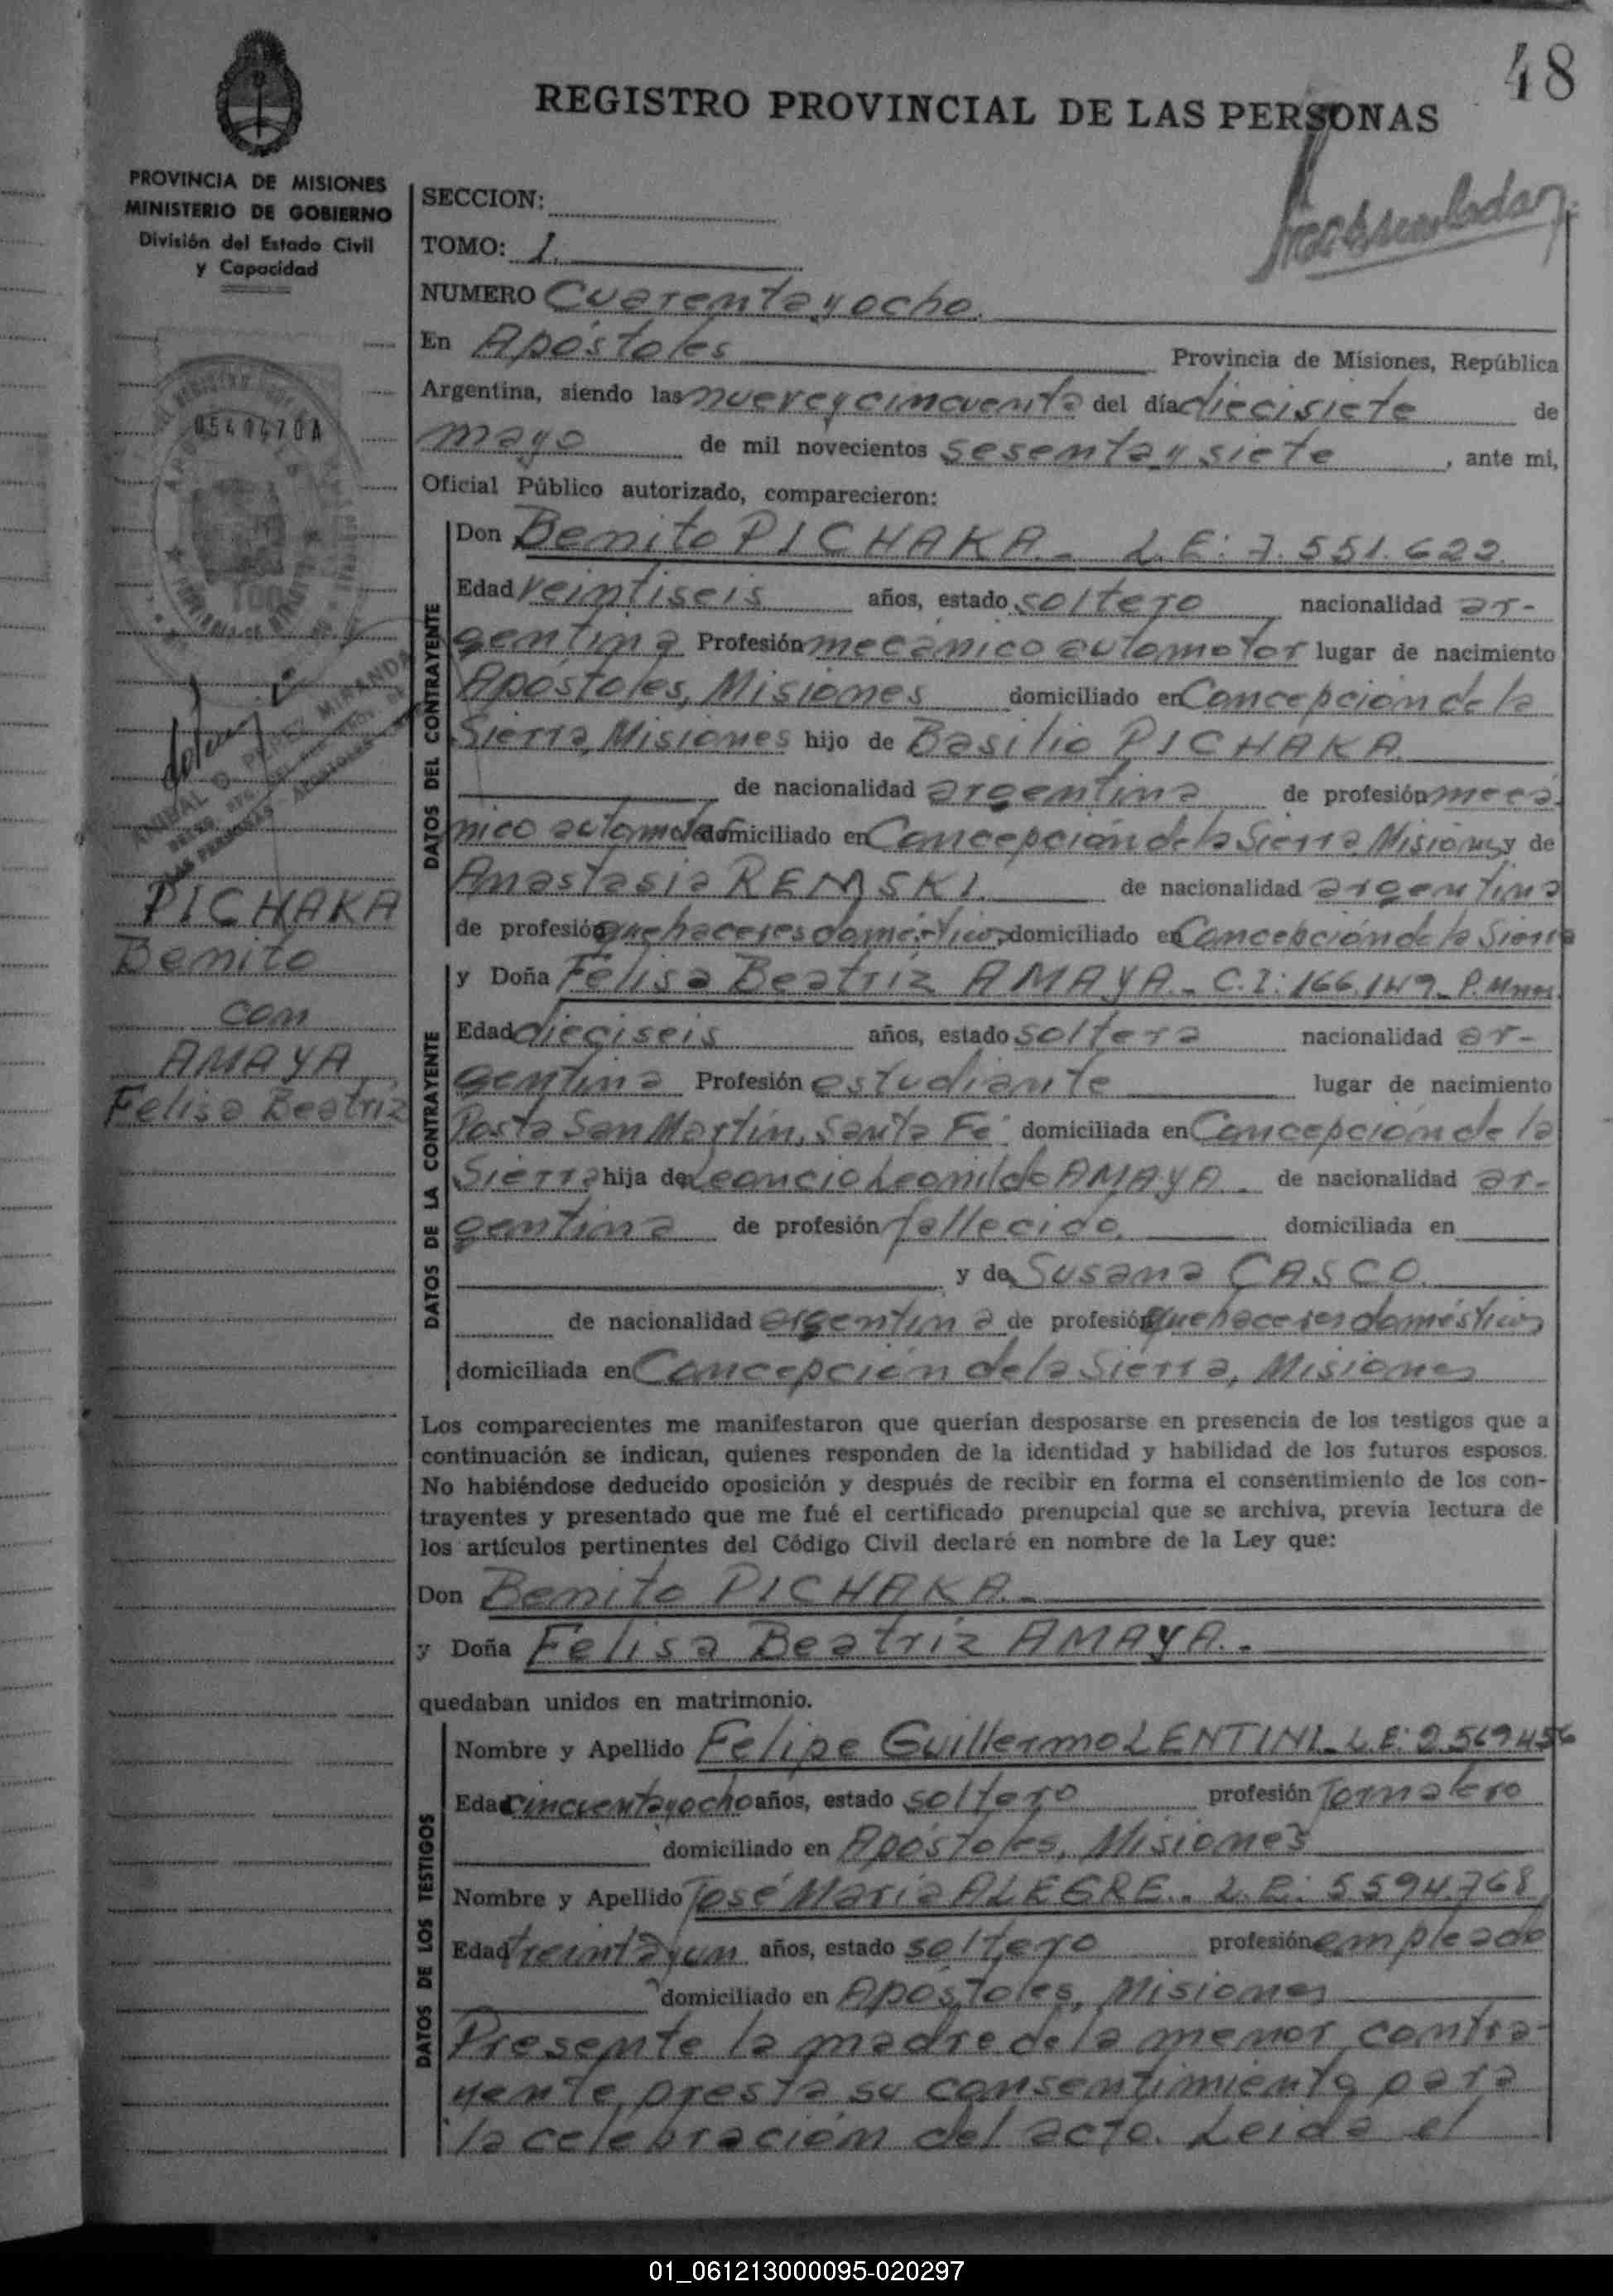 48
REGISTRO PROVINCIAL DE LAS PERSONAS
PROVINCIA DE MISIONES
MINISTERIO DE GOBIERNO
División del Estado Civil
y Capacidad
SECCION:
TOMO: 1.
NUMERO Cuarenta y ocho.
En Apóstoles Provincia de Misiones, República
Argentina, siendo las nueve y cincuenta del día diecisiete de
mayo de mil novecientos sesenta y siete, ante mi,
Oficial Público autorizado, comparecieron:
DATOS DEL CONTRAYENTE
Don Benito PICHAKA.- L.E: 7.551.622.
Edad veintiseis años, estado soltero nacionalidad ar-
gentina Profesión mecánico automotor lugar de nacimiento
Apostoles, Misiones domiciliado en Concepción de la
Sierra, Misiones hijo de Basilio PICHAKA.
de nacionalidad argentina de profesión mecá-
nico automotor domiciliado en Concepción de la Sierra, Misiones y de
Anastasia REMSKI. de nacionalidad argentina
de profesión quehaceres domésticos domiciliado en Concepción de la Sierra
DATOS DE LA CONTRAYENTE
y Doña Felisa Beatriz AMAYA.- C.I: 166.149.
Edad dieciseis años, estado soltera nacionalidad ar-
gentina Profesión estudiante lugar de nacimiento
Posta San Martín, Santa Fé domiciliada en Concepción de la
Sierra hija de Leoncio Leonildo AMAYA. de nacionalidad ar-
gentina de profesión fallecido. domiciliada en
y de Susana CASCO.
de nacionalidad argentina de profesión quehaceres domésticos
domiciliada en Concepción de la Sierra, Misiones
Los comparecientes me manifestaron que querían desposarse en presencia de los testigos que a
continuación se indican, quienes responden de la identidad y habilidad de los futuros esposos.
No habiéndose deducido oposición y después de recibir en forma el consentimiento de los con-
trayentes y presentado que me fué el certificado prenupcial que se archiva, previa lectura de
los artículos pertinentes del Código Civil declaré en nombre de la Ley que:
Don Benito PICHAKA.-
y Doña Felisa Beatriz AMAYA.-
quedaban unidos en matrimonio.
DATOS DE LOS TESTIGOS
Nombre y Apellido Felipe Guillermo LENTINI. L.E: 2.569.456
Edad cincuenta y ocho años, estado soltero profesión Jornalero
domiciliado en Apóstoles, Misiones
Nombre y Apellido José María ALEGRE.- L.E: 5594.768
Edad treinta y un años, estado soltero profesión empleado
domiciliado en Apóstoles, Misiones
Presente la madre de la menor contra-
yente, presta su consentimiento para
la celebración del acto. Leida el
0540470A
ANIBAL O. PEREZ MIRANDA
PICHAKA
Benito
con
AMAYA
Felisa Beatriz
01_061213000095-020297